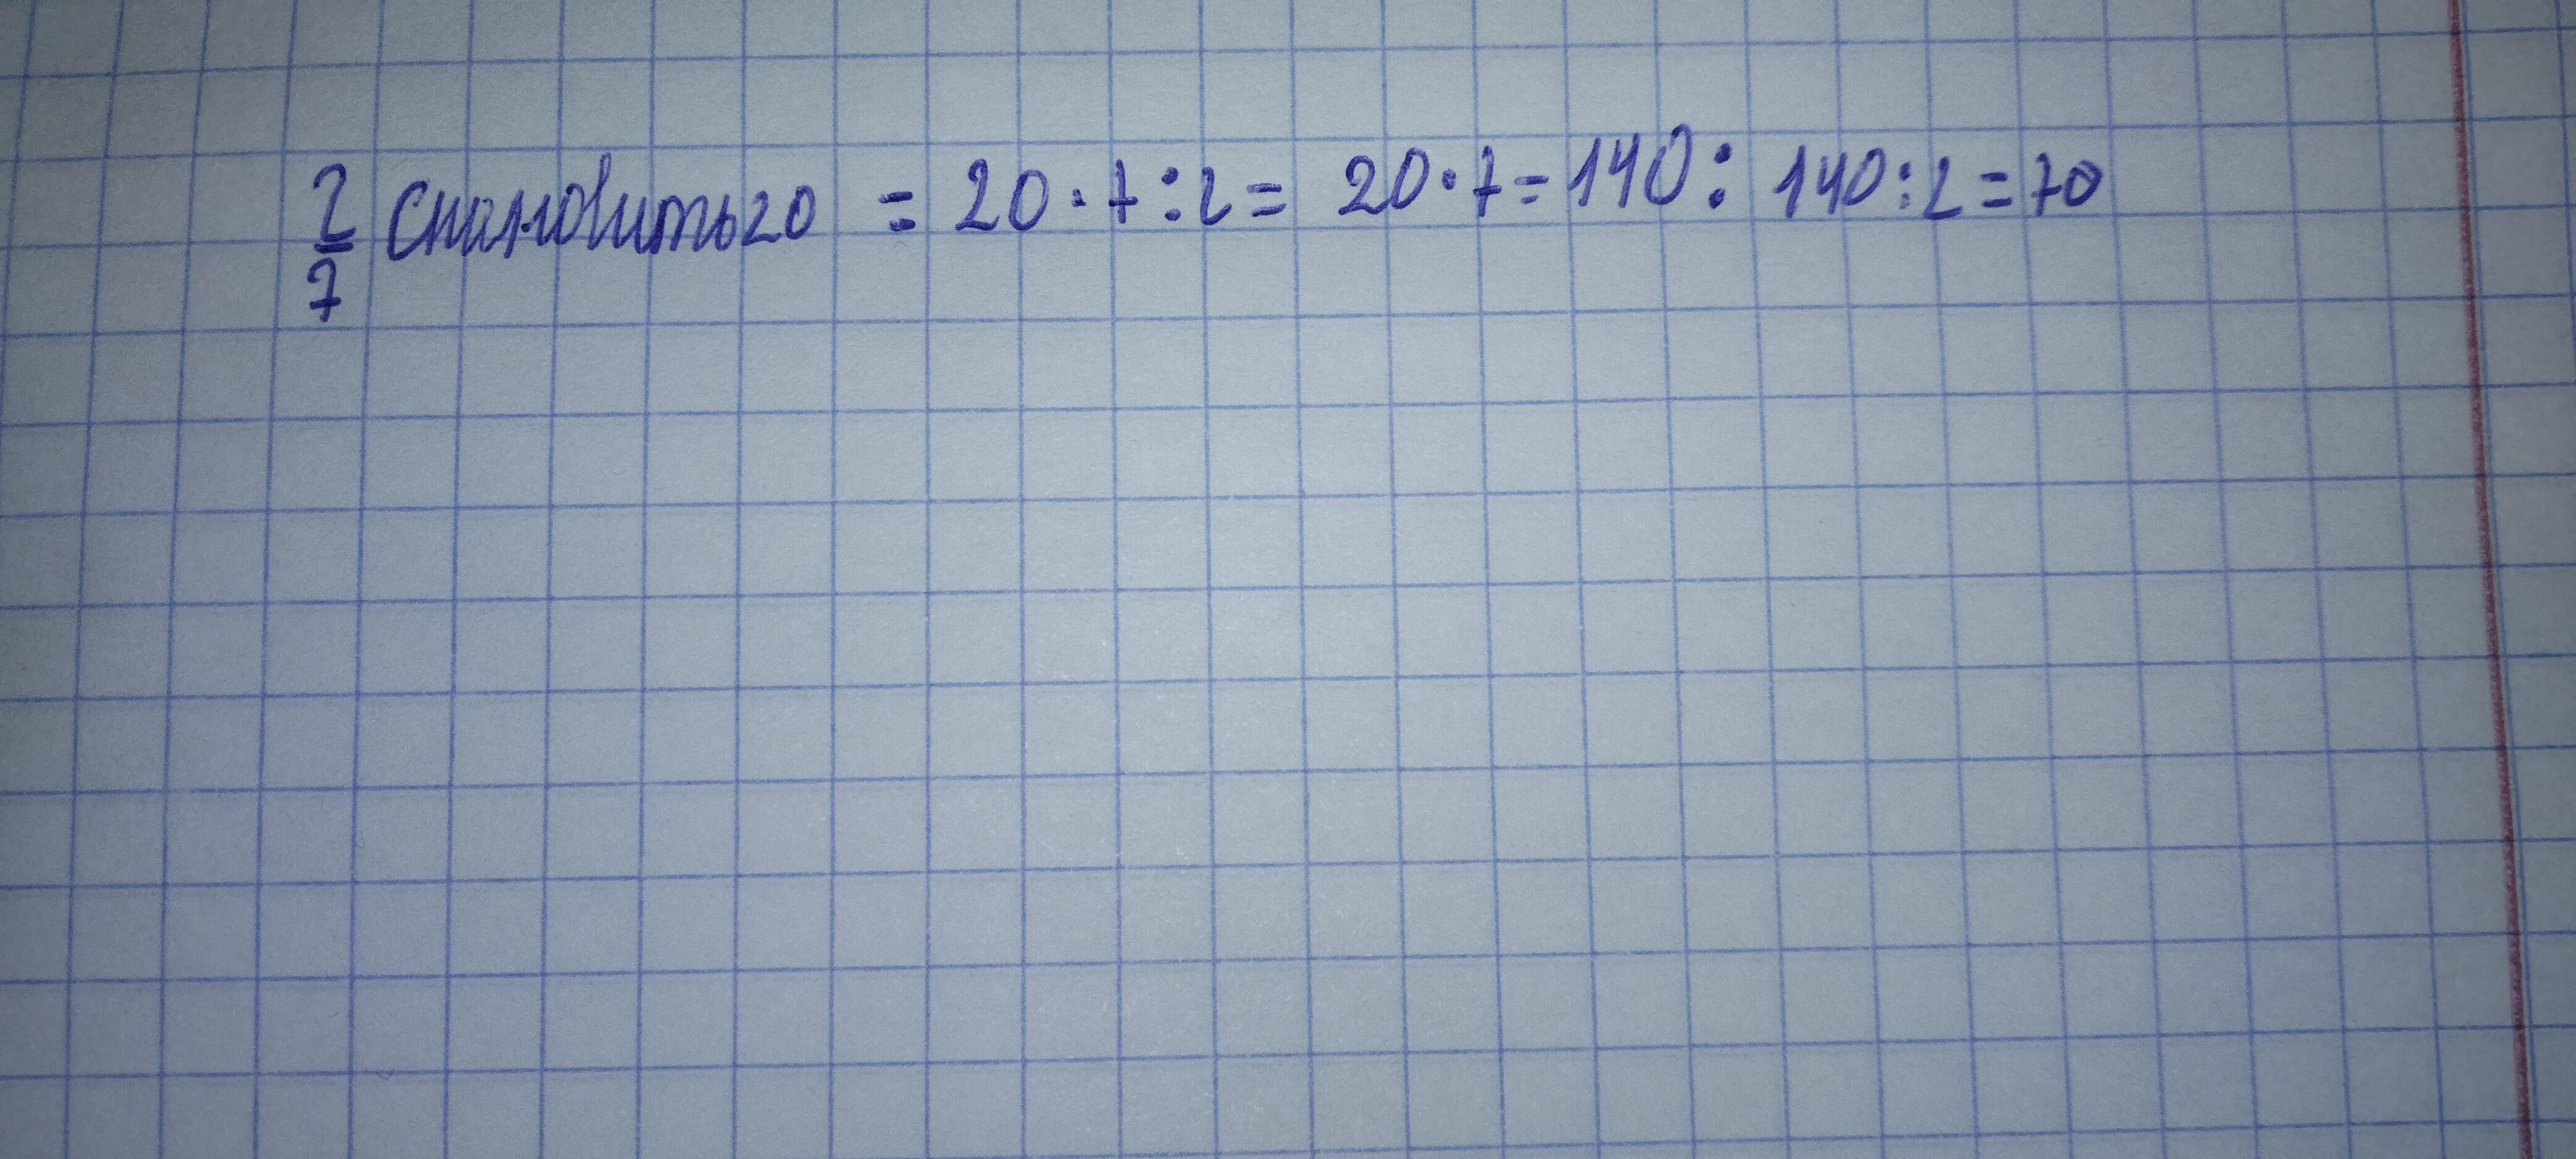 2/7 становить 20 = 20 · 7 : 2 = 20 · 7 = 140 : 140 : 2 = 70